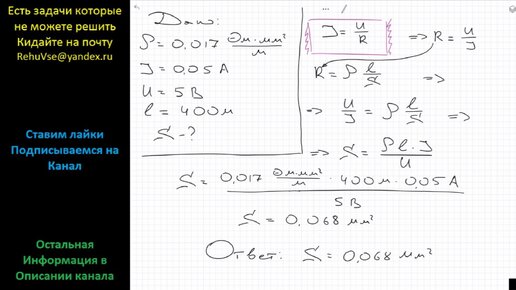 Есть задачи которые
не можете решить
Кидайте на почту
RehuVse@yandex.ru
Ставим лайки
Подписываемся на
Канал
Остальная
Информация в
Описании канала
Дано:
ρ = 0,017 Ом·мм²/м
I = 0,05 А
U = 5 В
l = 400 м
S - ?
I = U/R => R = U/I
R = ρ l/S =>
=> U/I = ρ l/S =>
=> S = ρl·I/U
S = 0,017 Ом·мм²/м · 400 м · 0,05 А / 5 В
S = 0,068 мм²
Ответ: S = 0,068 мм²